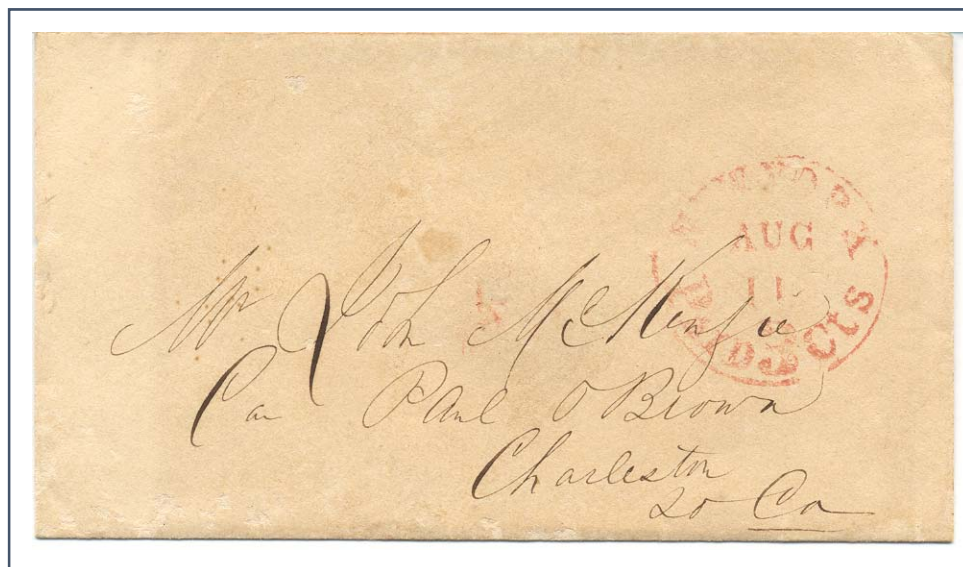 NEW YORK
AUG
11
PAID 3 Cts
Mr John McKenzie
Car Paul O Brown
Charleston
So Ca